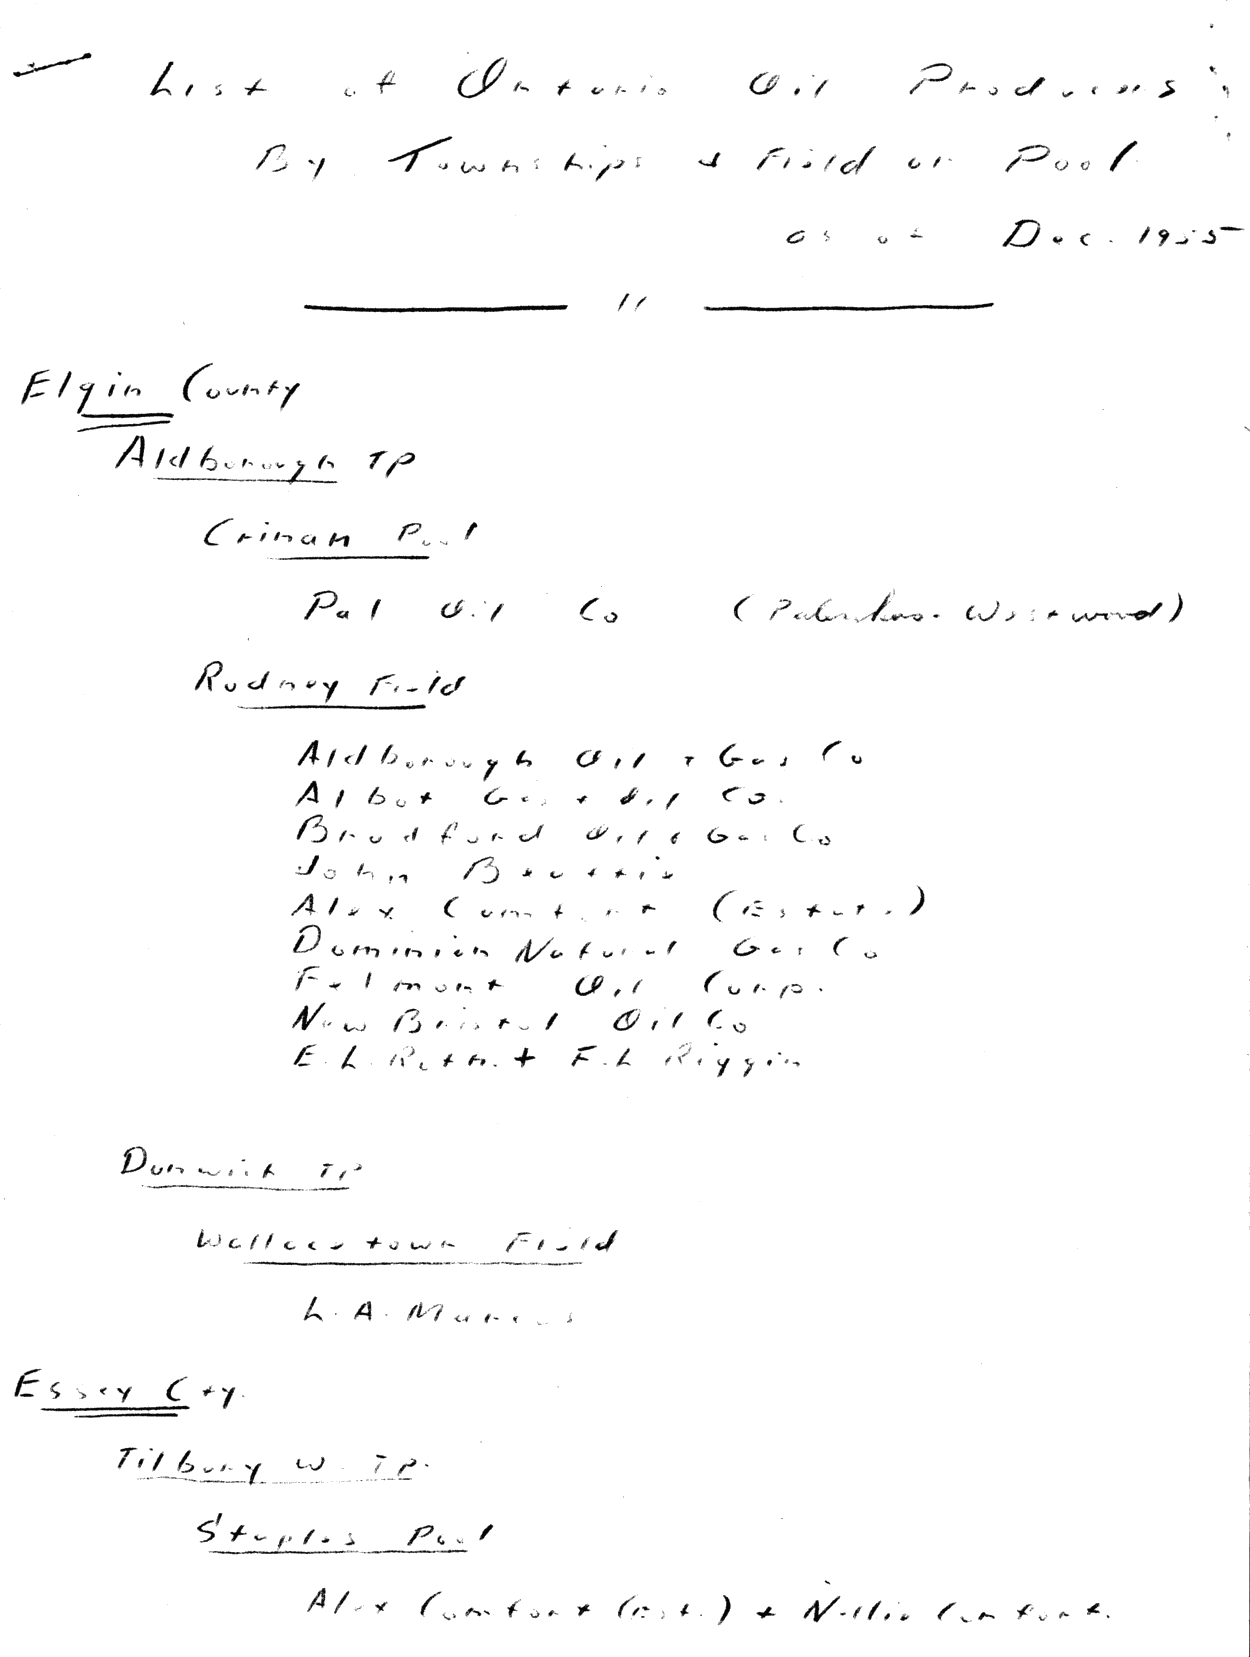 List of Ontario Oil Producers
By Townships & Field or Pool
as of Dec. 1955
Elgin County
Aldborough TP
Crinan Pool
Pal Oil Co ( Westwood)
Rodney Field
Aldborough Oil & Gas Co
Albot Gas & Oil Co.
Bradford Oil & Gas Co
John
Alex Comfort (Estate)
Dominion Natural Gas Co
Felmont Oil Corp.
New Bristol Oil Co
E. L. + F. L Riggin
Dunwich TP
Wallacetown Field
L. A. Marcus
Essex Cty.
Tilbury W. TP.
Staples Pool
Alex Comfort (Est.) + Nellie Comfort.